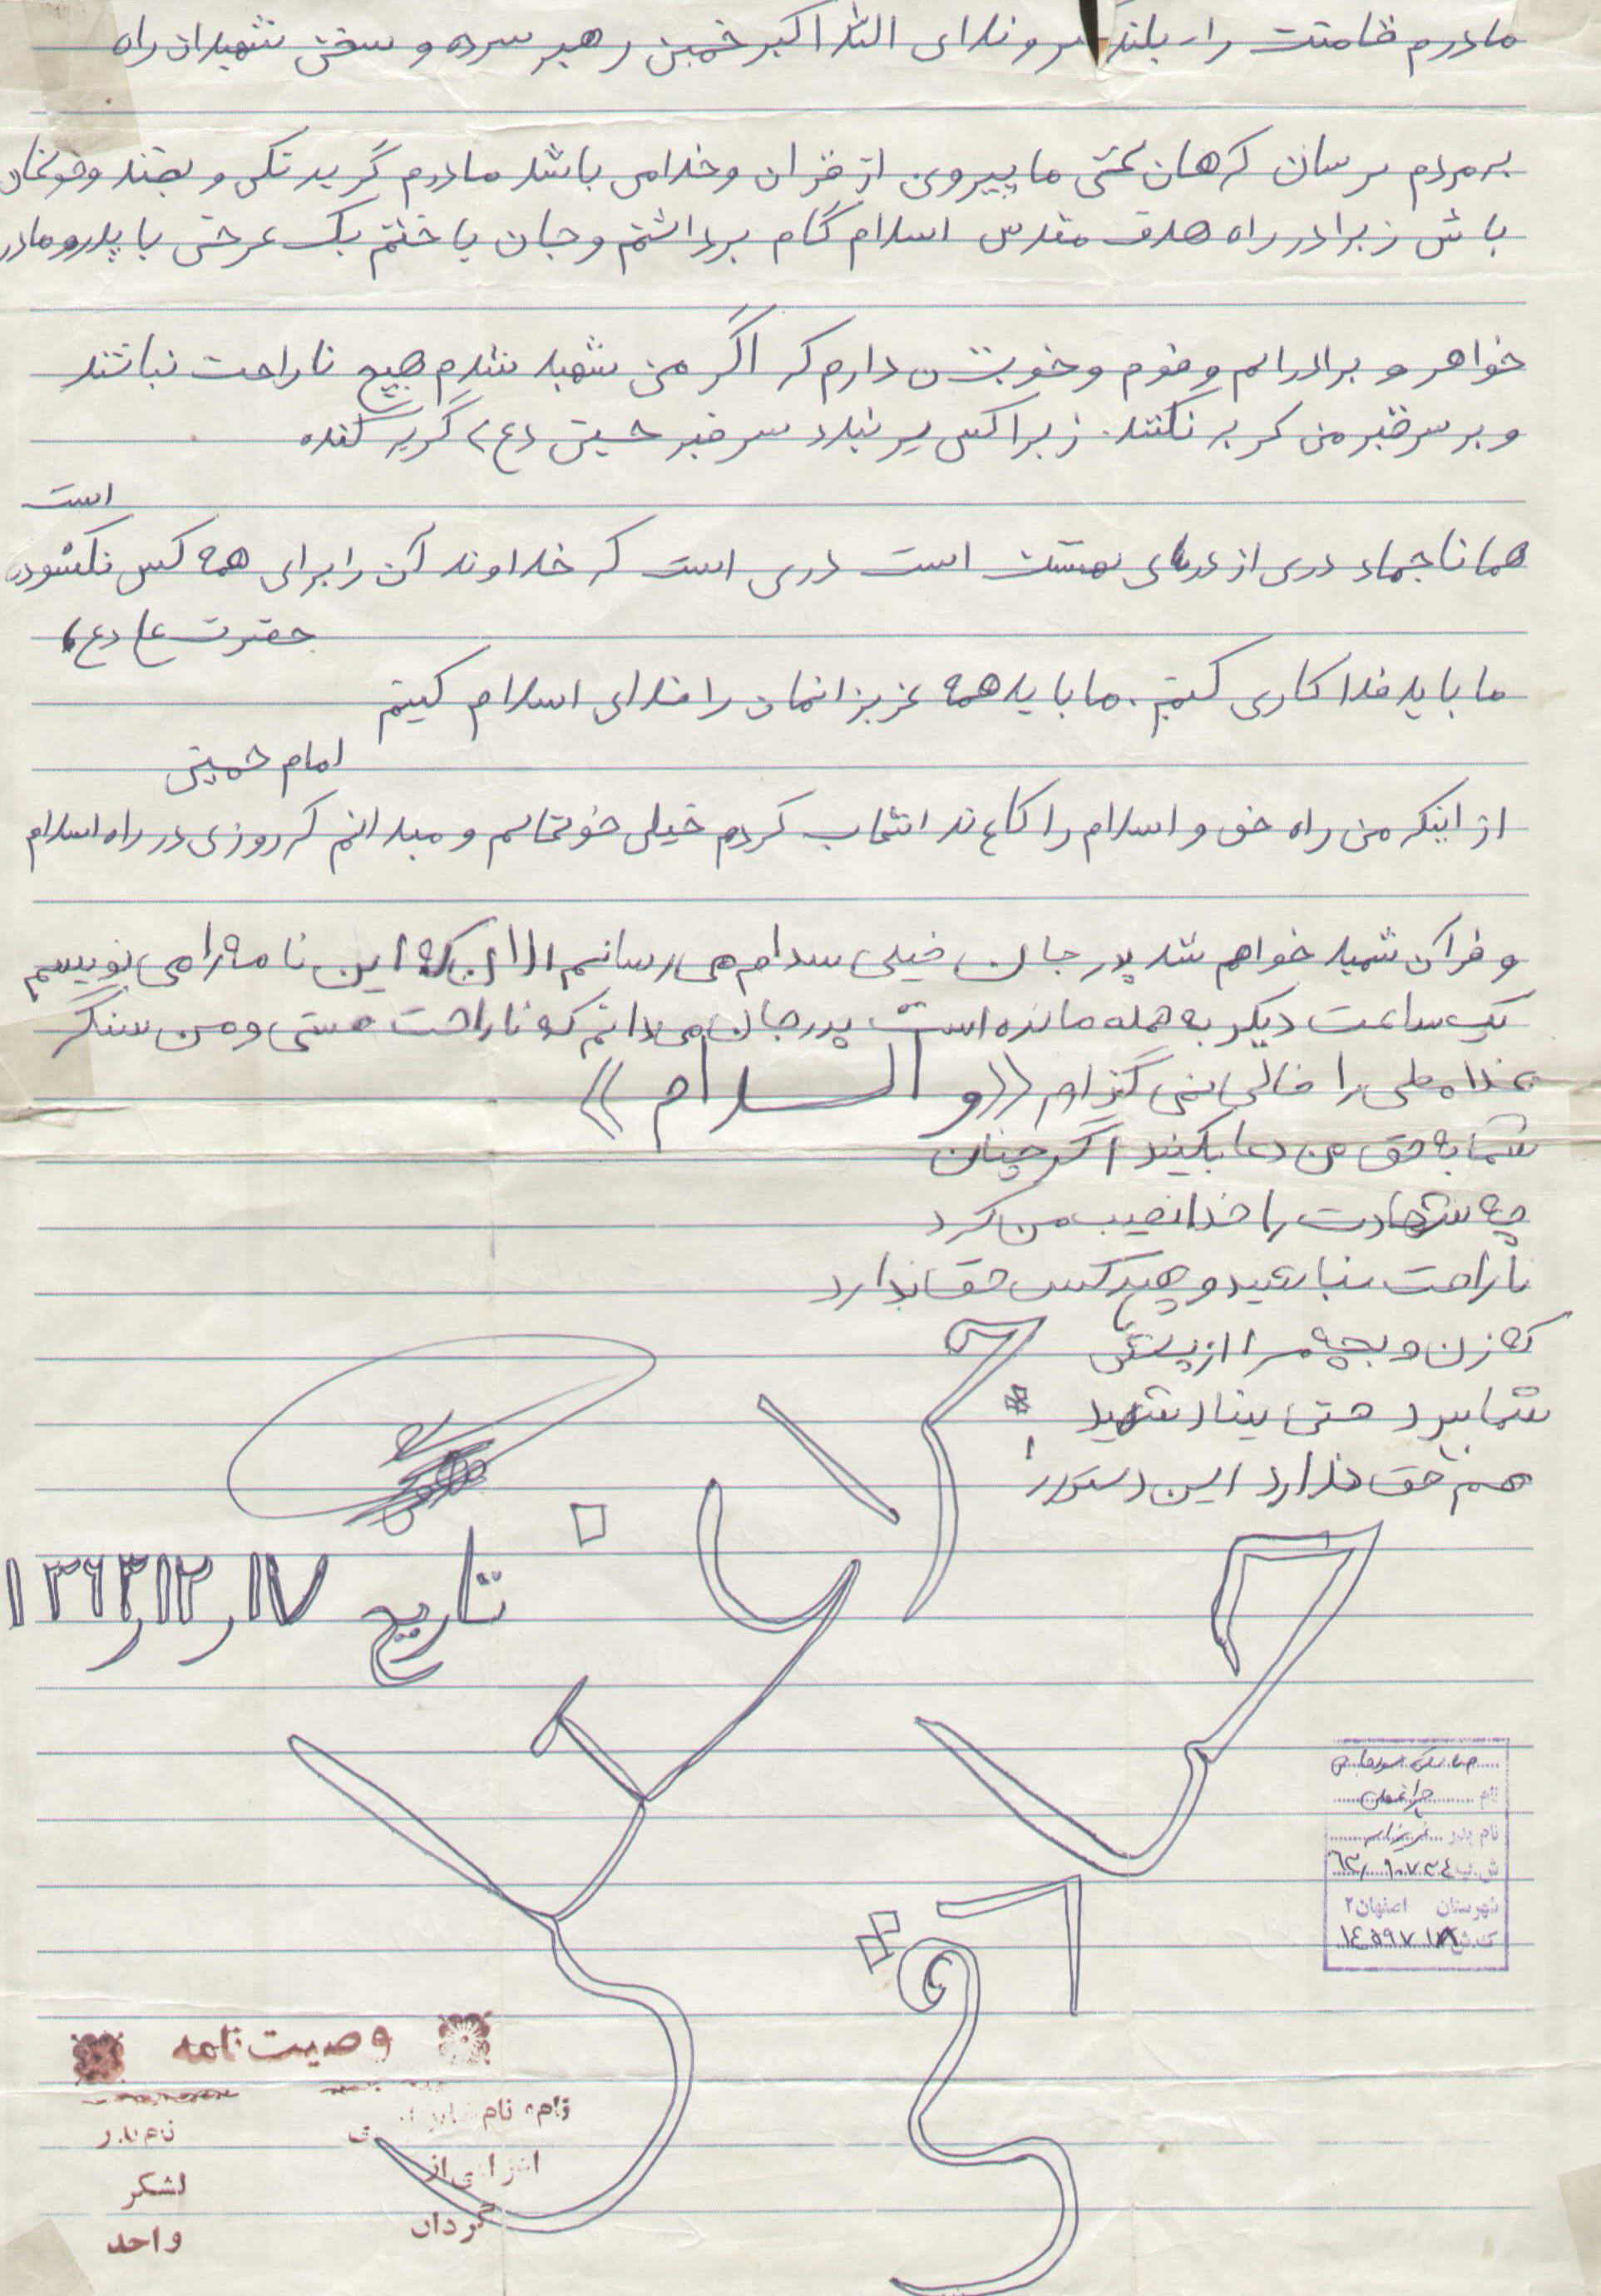 مادرم قامتت را بلند کن و ندای الله اکبر خمینی رهبر سرده و سخن شهیدان راه
به مردم برسان که همان کشتی ما پیروی از قران و خدا می باشد مادرم گریه نکن و بخند و خوشحال
باش زیرا در راه هدف مقدس اسلام گام برداشتم و جان باختم یک عرضی با پدر و مادر
خواهر و برادرانم و قوم و خویشن دارم که اگر من شهید شدم هیچ ناراحت نباشند
و بر سر قبر من گریه نکنند. زیرا کسی نبد سر قبر حسین (ع) گریه کند
همانا جهاد دری از درهای بهشت است دری است که خداوند آن را برای همه کس نگشوده است
حضرت علی (ع)
ما باید فدا کاری کنیم. ما باید همه عزیزانمان را فدای اسلام کنیم
امام خمینی
از اینکه من راه حق و اسلام را انتخاب کردم خیلی خوشحالم و میدانم که روزی در راه اسلام
و قرآن شهید خواهم شد پدر جان خیلی سلام می رسانم الان که این نامه را می نویسم
یک ساعت دیگر به حمله مانده است پدر جان می دانم که ناراحت هستی و من سنگر
را خالی نمی گذارم ((والسلام))
شما به حق من دعا بکنید اگر چنان
چه شهادت را خدا نصیب من کرد
ناراحت نباشید و هیچ کس حق ندارد
که زن و بچه مرا از پیش
شما ببرد حتی بنیاد شهید
هم حق ندارد این دستور
تاریخ ۱۳۶۳/۱۲/۱۷
نام
نام پدر
ش.پ ۶۳/۹۰۷۳۴
شهرستان اصفهان ۲
وصیت نامه
نام و نام خانوادگی
نام پدر
اعزامی از
لشکر
گردان
واحد